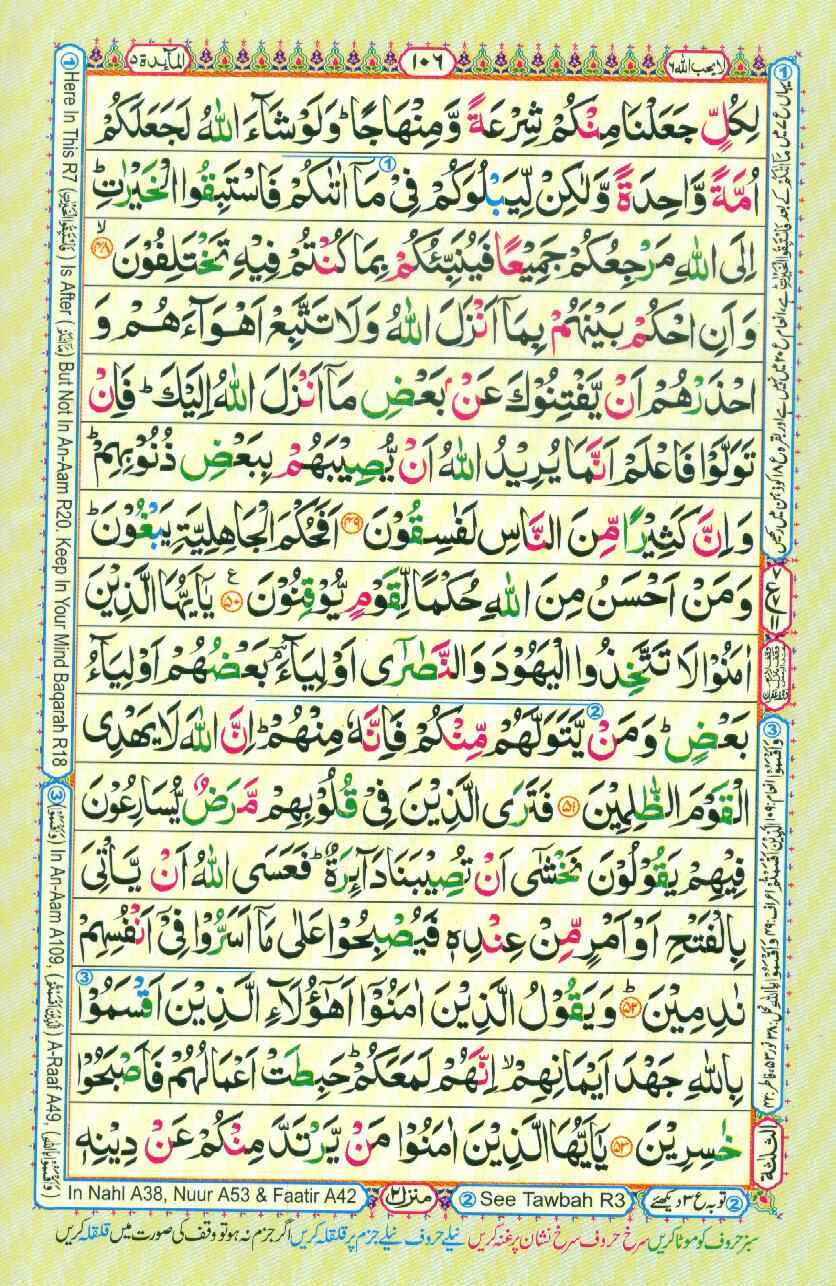 المآئدة ۵
۱۰۶
لا یحب الله ۶
لِكُلٍّ جَعَلْنَا مِنْكُمْ شِرْعَةً وَّمِنْهَاجًا ؕ وَلَوْ شَآءَ اللّٰهُ لَجَعَلَكُمْ
اُمَّةً وَّاحِدَةً وَّلٰكِنْ لِّيَبْلُوَكُمْ فِیْ مَاۤ اٰتٰىكُمْ فَاسْتَبِقُوا الْخَیْرٰتِ ؕ
اِلَی اللّٰهِ مَرْجِعُكُمْ جَمِیْعًا فَیُنَبِّئُكُمْ بِمَا كُنْتُمْ فِیْهِ تَخْتَلِفُوْنَ ۙ ﴿۴۸﴾
وَ اَنِ احْكُمْ بَیْنَهُمْ بِمَاۤ اَنْزَلَ اللّٰهُ وَلَا تَتَّبِعْ اَهْوَآءَهُمْ وَ
احْذَرْهُمْ اَنْ یَّفْتِنُوْكَ عَنْۢ بَعْضِ مَاۤ اَنْزَلَ اللّٰهُ اِلَیْكَ ؕ فَاِنْ
تَوَلَّوْا فَاعْلَمْ اَنَّمَا یُرِیْدُ اللّٰهُ اَنْ یُّصِیْبَهُمْ بِبَعْضِ ذُنُوْبِهِمْ ؕ
وَ اِنَّ كَثِیْرًا مِّنَ النَّاسِ لَفٰسِقُوْنَ ﴿۴۹﴾ اَفَحُكْمَ الْجَاهِلِیَّةِ یَبْغُوْنَ ؕ
وَمَنْ اَحْسَنُ مِنَ اللّٰهِ حُكْمًا لِّقَوْمٍ یُّوْقِنُوْنَ ﴿۵۰﴾ ع یٰۤاَیُّهَا الَّذِیْنَ
اٰمَنُوْا لَا تَتَّخِذُوا الْیَهُوْدَ وَالنَّصٰرٰۤی اَوْلِیَآءَ ۘؔ بَعْضُهُمْ اَوْلِیَآءُ
بَعْضٍ ؕ وَمَنْ یَّتَوَلَّهُمْ مِّنْكُمْ فَاِنَّهٗ مِنْهُمْ ؕ اِنَّ اللّٰهَ لَا یَهْدِی
الْقَوْمَ الظّٰلِمِیْنَ ﴿۵۱﴾ فَتَرَی الَّذِیْنَ فِیْ قُلُوْبِهِمْ مَّرَضٌ یُّسَارِعُوْنَ
فِیْهِمْ یَقُوْلُوْنَ نَخْشٰۤی اَنْ تُصِیْبَنَا دَآئِرَةٌ ؕ فَعَسَی اللّٰهُ اَنْ یَّاْتِیَ
بِالْفَتْحِ اَوْ اَمْرٍ مِّنْ عِنْدِهٖ فَیُصْبِحُوْا عَلٰی مَاۤ اَسَرُّوْا فِیْۤ اَنْفُسِهِمْ
نٰدِمِیْنَ ؕ ﴿۵۲﴾ وَ یَقُوْلُ الَّذِیْنَ اٰمَنُوْۤا اَهٰۤؤُلَآءِ الَّذِیْنَ اَقْسَمُوْا
بِاللّٰهِ جَهْدَ اَیْمَانِهِمْ ۙ اِنَّهُمْ لَمَعَكُمْ ؕ حَبِطَتْ اَعْمَالُهُمْ فَاَصْبَحُوْا
خٰسِرِیْنَ ﴿۵۳﴾ یٰۤاَیُّهَا الَّذِیْنَ اٰمَنُوْا مَنْ یَّرْتَدَّ مِنْكُمْ عَنْ دِیْنِهٖ
① Here In This R7 (فَاسْتَبِقُوا الْخَیْرٰتِ) Is After (مَاۤ اٰتٰىكُمْ) But Not In An-Aam R20. Keep In Your Mind Baqarah R18
③ (وَاَقْسَمُوْا) In An-Aam A109, (الَّذِیْنَ اَقْسَمْتُمْ) A-Raaf A49, (وَاَقْسَمُوْا بِاللّٰهِ)
In Nahl A38, Nuur A53 & Faatir A42
منزل ۲
② See Tawbah R3
② توبہ ع ۳ دیکھئے
الثلثة
سبز حروف کو موٹا کریں سرخ حروف سرخ نشان پر غنہ کریں نیلے حروف نیلے جزم پر قلقلہ کریں اگر جزم نہ ہو تو وقف کی صورت میں قلقلہ کریں